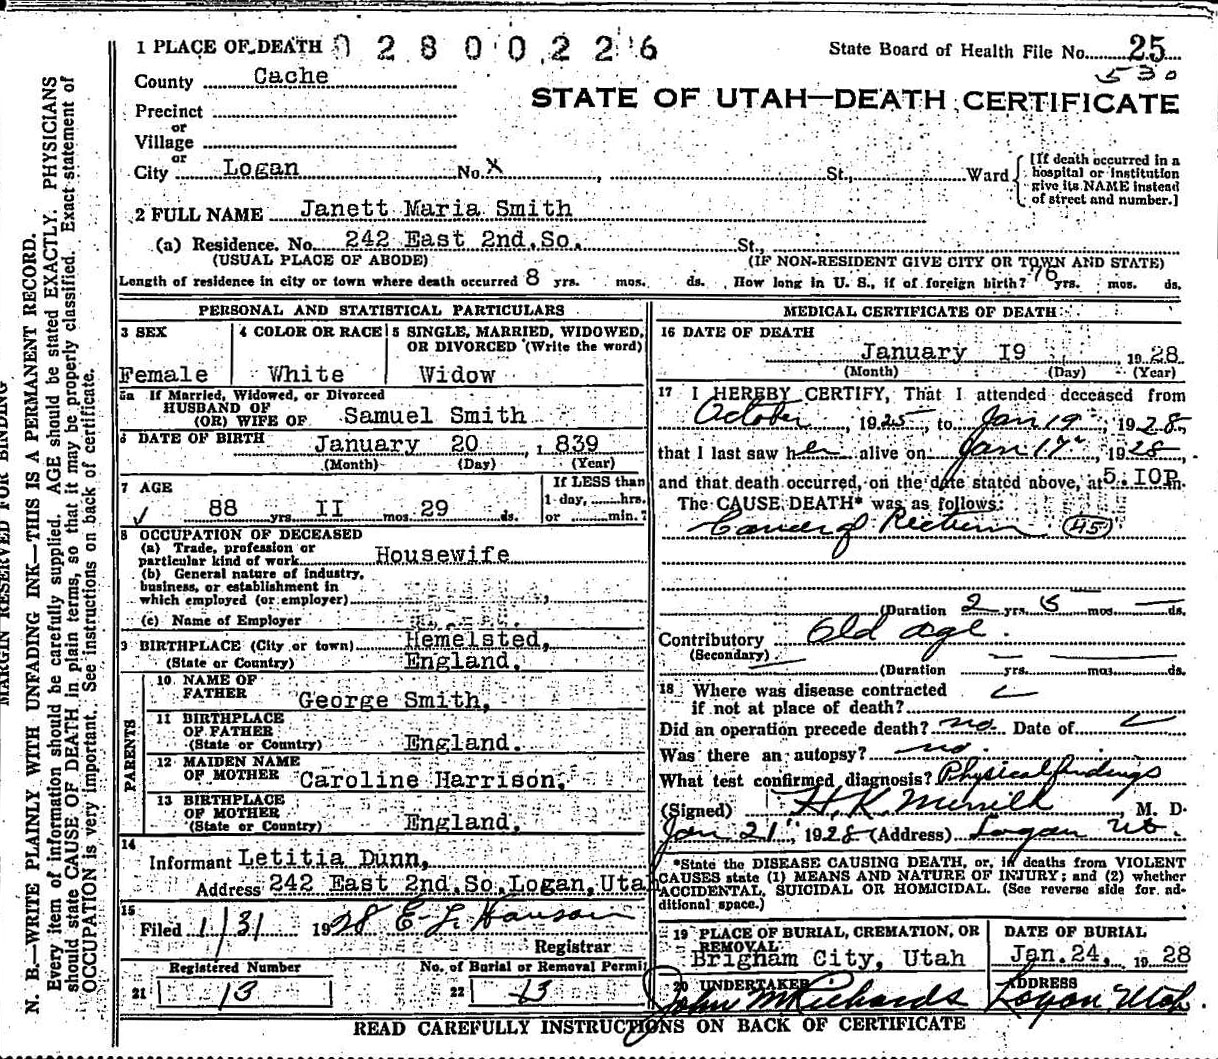 1 PLACE OF DEATH 0 2 8 0 0 2 2 6 State Board of Health File No. 25
530
County Cache
STATE OF UTAH—DEATH CERTIFICATE
Precinct
or
Village
or
City Logan No. X , St., Ward
[If death occurred in a
hospital or institution
give its NAME instead
of street and number.]
2 FULL NAME Janett Maria Smith
(a) Residence. No. 242 East 2nd.So. St.,
(USUAL PLACE OF ABODE) (IF NON-RESIDENT GIVE CITY OR TOWN AND STATE)
Length of residence in city or town where death occurred 8 yrs. mos. ds. How long in U. S., if of foreign birth? 76 yrs. mos. ds.
PERSONAL AND STATISTICAL PARTICULARS
3 SEX
Female
4 COLOR OR RACE
White
5 SINGLE, MARRIED, WIDOWED,
OR DIVORCED (Write the word)
Widow
5a If Married, Widowed, or Divorced
HUSBAND OF
(OR) WIFE OF Samuel Smith
6 DATE OF BIRTH January 20 , 1 839
(Month) (Day) (Year)
7 AGE
88 yrs. II mos. 29 ds.
If LESS than
1 day, hrs.
or min.?
8 OCCUPATION OF DECEASED
(a) Trade, profession or
particular kind of work Housewife
(b) General nature of industry,
business, or establishment in
which employed (or employer)
(c) Name of Employer
9 BIRTHPLACE (City or town) Hemelsted,
(State or Country) England.
PARENTS
10 NAME OF
FATHER George Smith,
11 BIRTHPLACE
OF FATHER
(State or Country) England.
12 MAIDEN NAME
OF MOTHER Caroline Harrison,
13 BIRTHPLACE
OF MOTHER
(State or Country) England,
14
Informant Letitia Dunn,
Address 242 East 2nd.So.Logan,Utah
15
Filed 1/31 1928 E. L. Hanson
Registrar
Registered Number
21 13
No. of Burial or Removal Permit
22 13
MEDICAL CERTIFICATE OF DEATH
16 DATE OF DEATH
January I9 , 1928
(Month) (Day) (Year)
17 I HEREBY CERTIFY, That I attended deceased from
October , 1925, to Jan 19", 1928,
that I last saw her alive on Jan 17", 1928,
and that death occurred, on the date stated above, at 5:IOP m.
The CAUSE DEATH* was as follows:
Cancer of Rectum (45)
(Duration 2 yrs. 5 mos. — ds.
Contributory Old age.
(Secondary)
(Duration — yrs. — mos. — ds.
18 Where was disease contracted
if not at place of death?
Did an operation precede death? no. Date of
Was there an autopsy? no.
What test confirmed diagnosis? Physical findings
(Signed) H. K. Merrill , M. D.
Jan 21", 1928 (Address) Logan Ut.
*State the DISEASE CAUSING DEATH, or, in deaths from VIOLENT
CAUSES state (1) MEANS AND NATURE OF INJURY; and (2) whether
ACCIDENTAL, SUICIDAL OR HOMICIDAL. (See reverse side for ad-
ditional space.)
19 PLACE OF BURIAL, CREMATION, OR
REMOVAL
Brigham City, Utah
DATE OF BURIAL
Jan.24, 1928
20 UNDERTAKER
John M Richards
ADDRESS
Logan, Utah.
READ CAREFULLY INSTRUCTIONS ON BACK OF CERTIFICATE
MARGIN RESERVED FOR BINDING
N. B.—WRITE PLAINLY WITH UNFADING INK—THIS IS A PERMANENT RECORD.
Every item of information should be carefully supplied. AGE should be stated EXACTLY. PHYSICIANS
should state CAUSE OF DEATH in plain terms, so that it may be properly classified. Exact statement of
OCCUPATION is very important. See instructions on back of certificate.